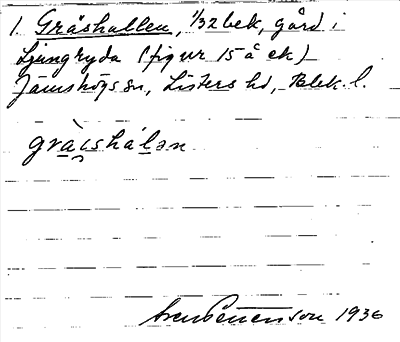 1. Gråshallen, 1/32 bek, gård i
Ljungryda (figur 15 å ek)
Jämshögs sn, Listers hd, Blek. l.
grài̯shálən
Sven Benson 1936